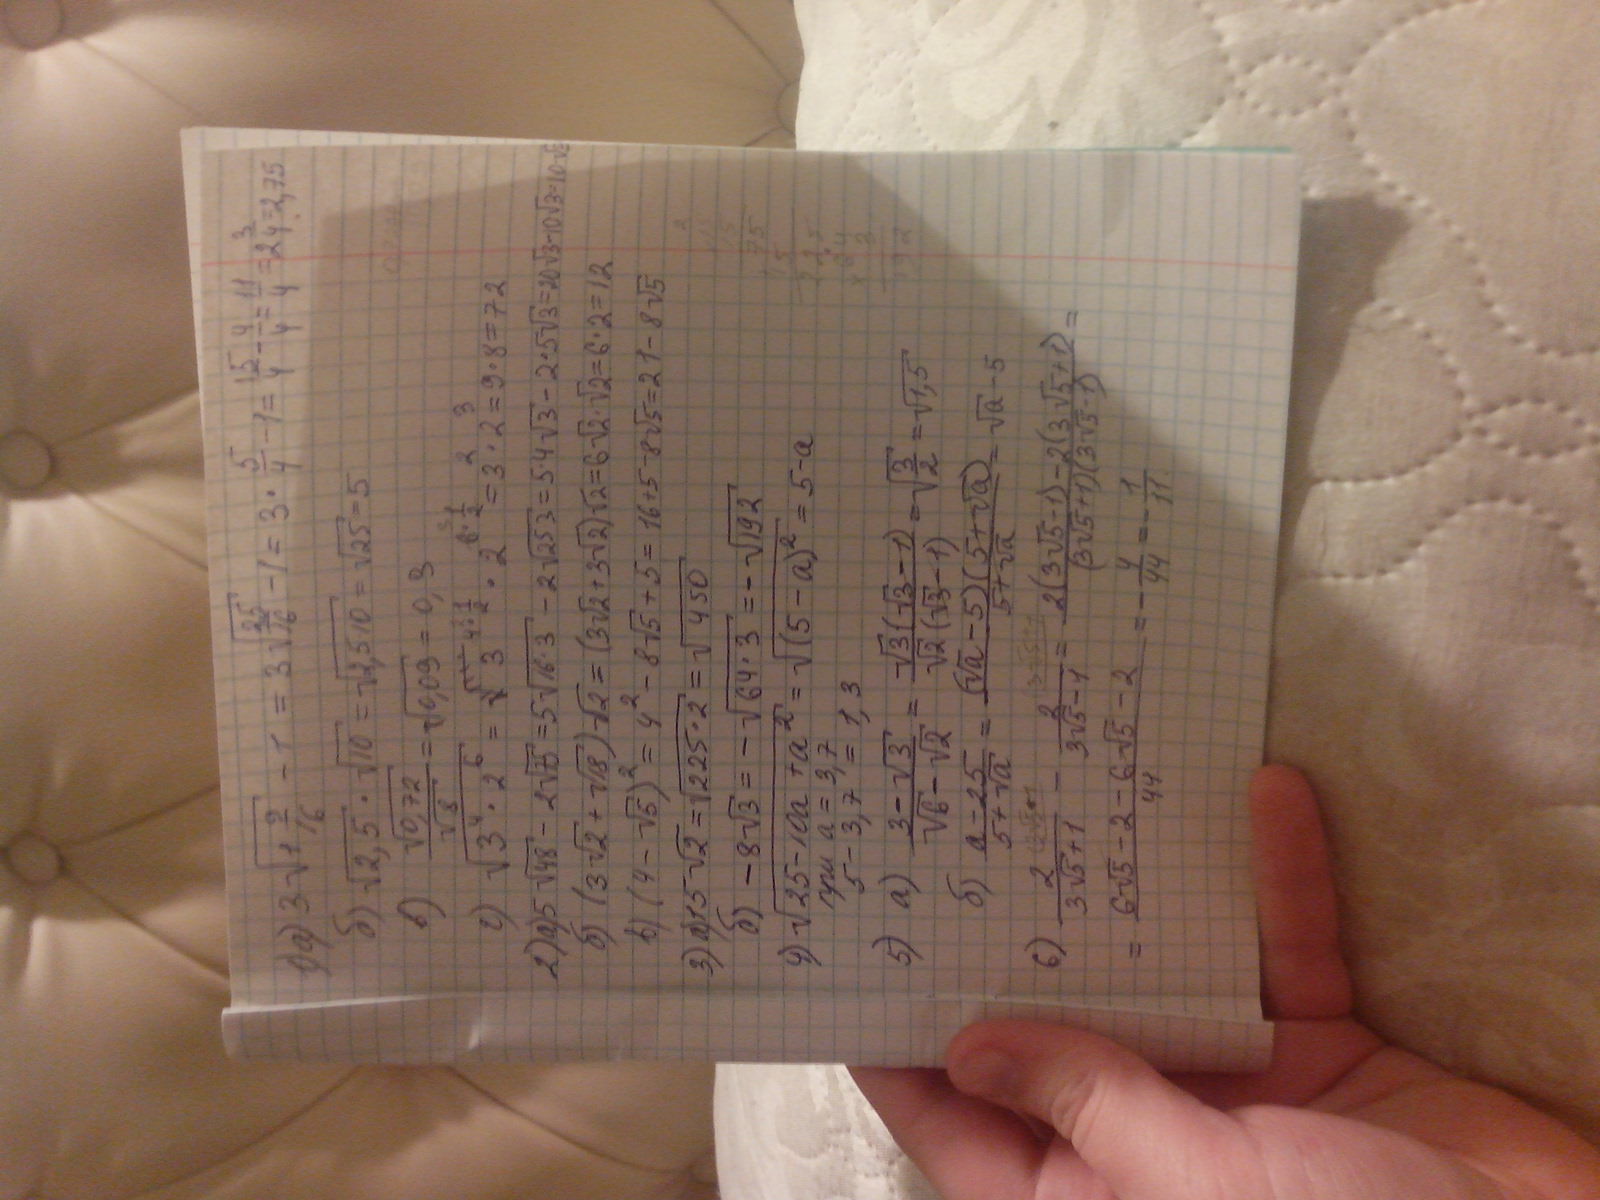 1) а) 3√(1 9/16) - 1 = 3√(25/16) - 1 = 3 · 5/4 - 1 = 15/4 - 4/4 = 11/4 = 2 3/4 = 2,75
б) √2,5 · √10 = √(2,5·10) = √25 = 5
в) √0,72/√8 = √0,09 = 0,3
г) √(3⁴ · 2⁶) = 3^(4·1/2) · 2^(6·1/2) = 3² · 2³ = 9 · 8 = 72
2) а) 5√48 - 2√75 = 5√(16·3) - 2√(25·3) = 5·4√3 - 2·5√3 = 20√3 - 10√3 = 10√3
б) (3√2 + √18)·√2 = (3√2 + 3√2)√2 = 6√2·√2 = 6·2 = 12
в) (4 - √5)² = 4² - 8√5 + 5 = 16+5-8√5 = 21-8√5
3) а) 15√2 = √(225·2) = √450
б) -8√3 = -√(64·3) = -√192
4) √(25-10a+a²) = √((5-a)²) = 5-a
при a = 3,7
5 - 3,7 = 1,3
5) а) (3-√3)/(√6-√2) = √3(√3-1)/√2(√3-1) = √(3/2) = √1,5
б) (a-25)/(5+√a) = (√a-5)(5+√a)/(5+√a) = √a-5
6) 2/(3√5+1) - 2/(3√5-1) = (2(3√5-1)-2(3√5+1))/((3√5+1)(3√5-1)) =
= (6√5-2-6√5-2)/44 = -4/44 = -1/11